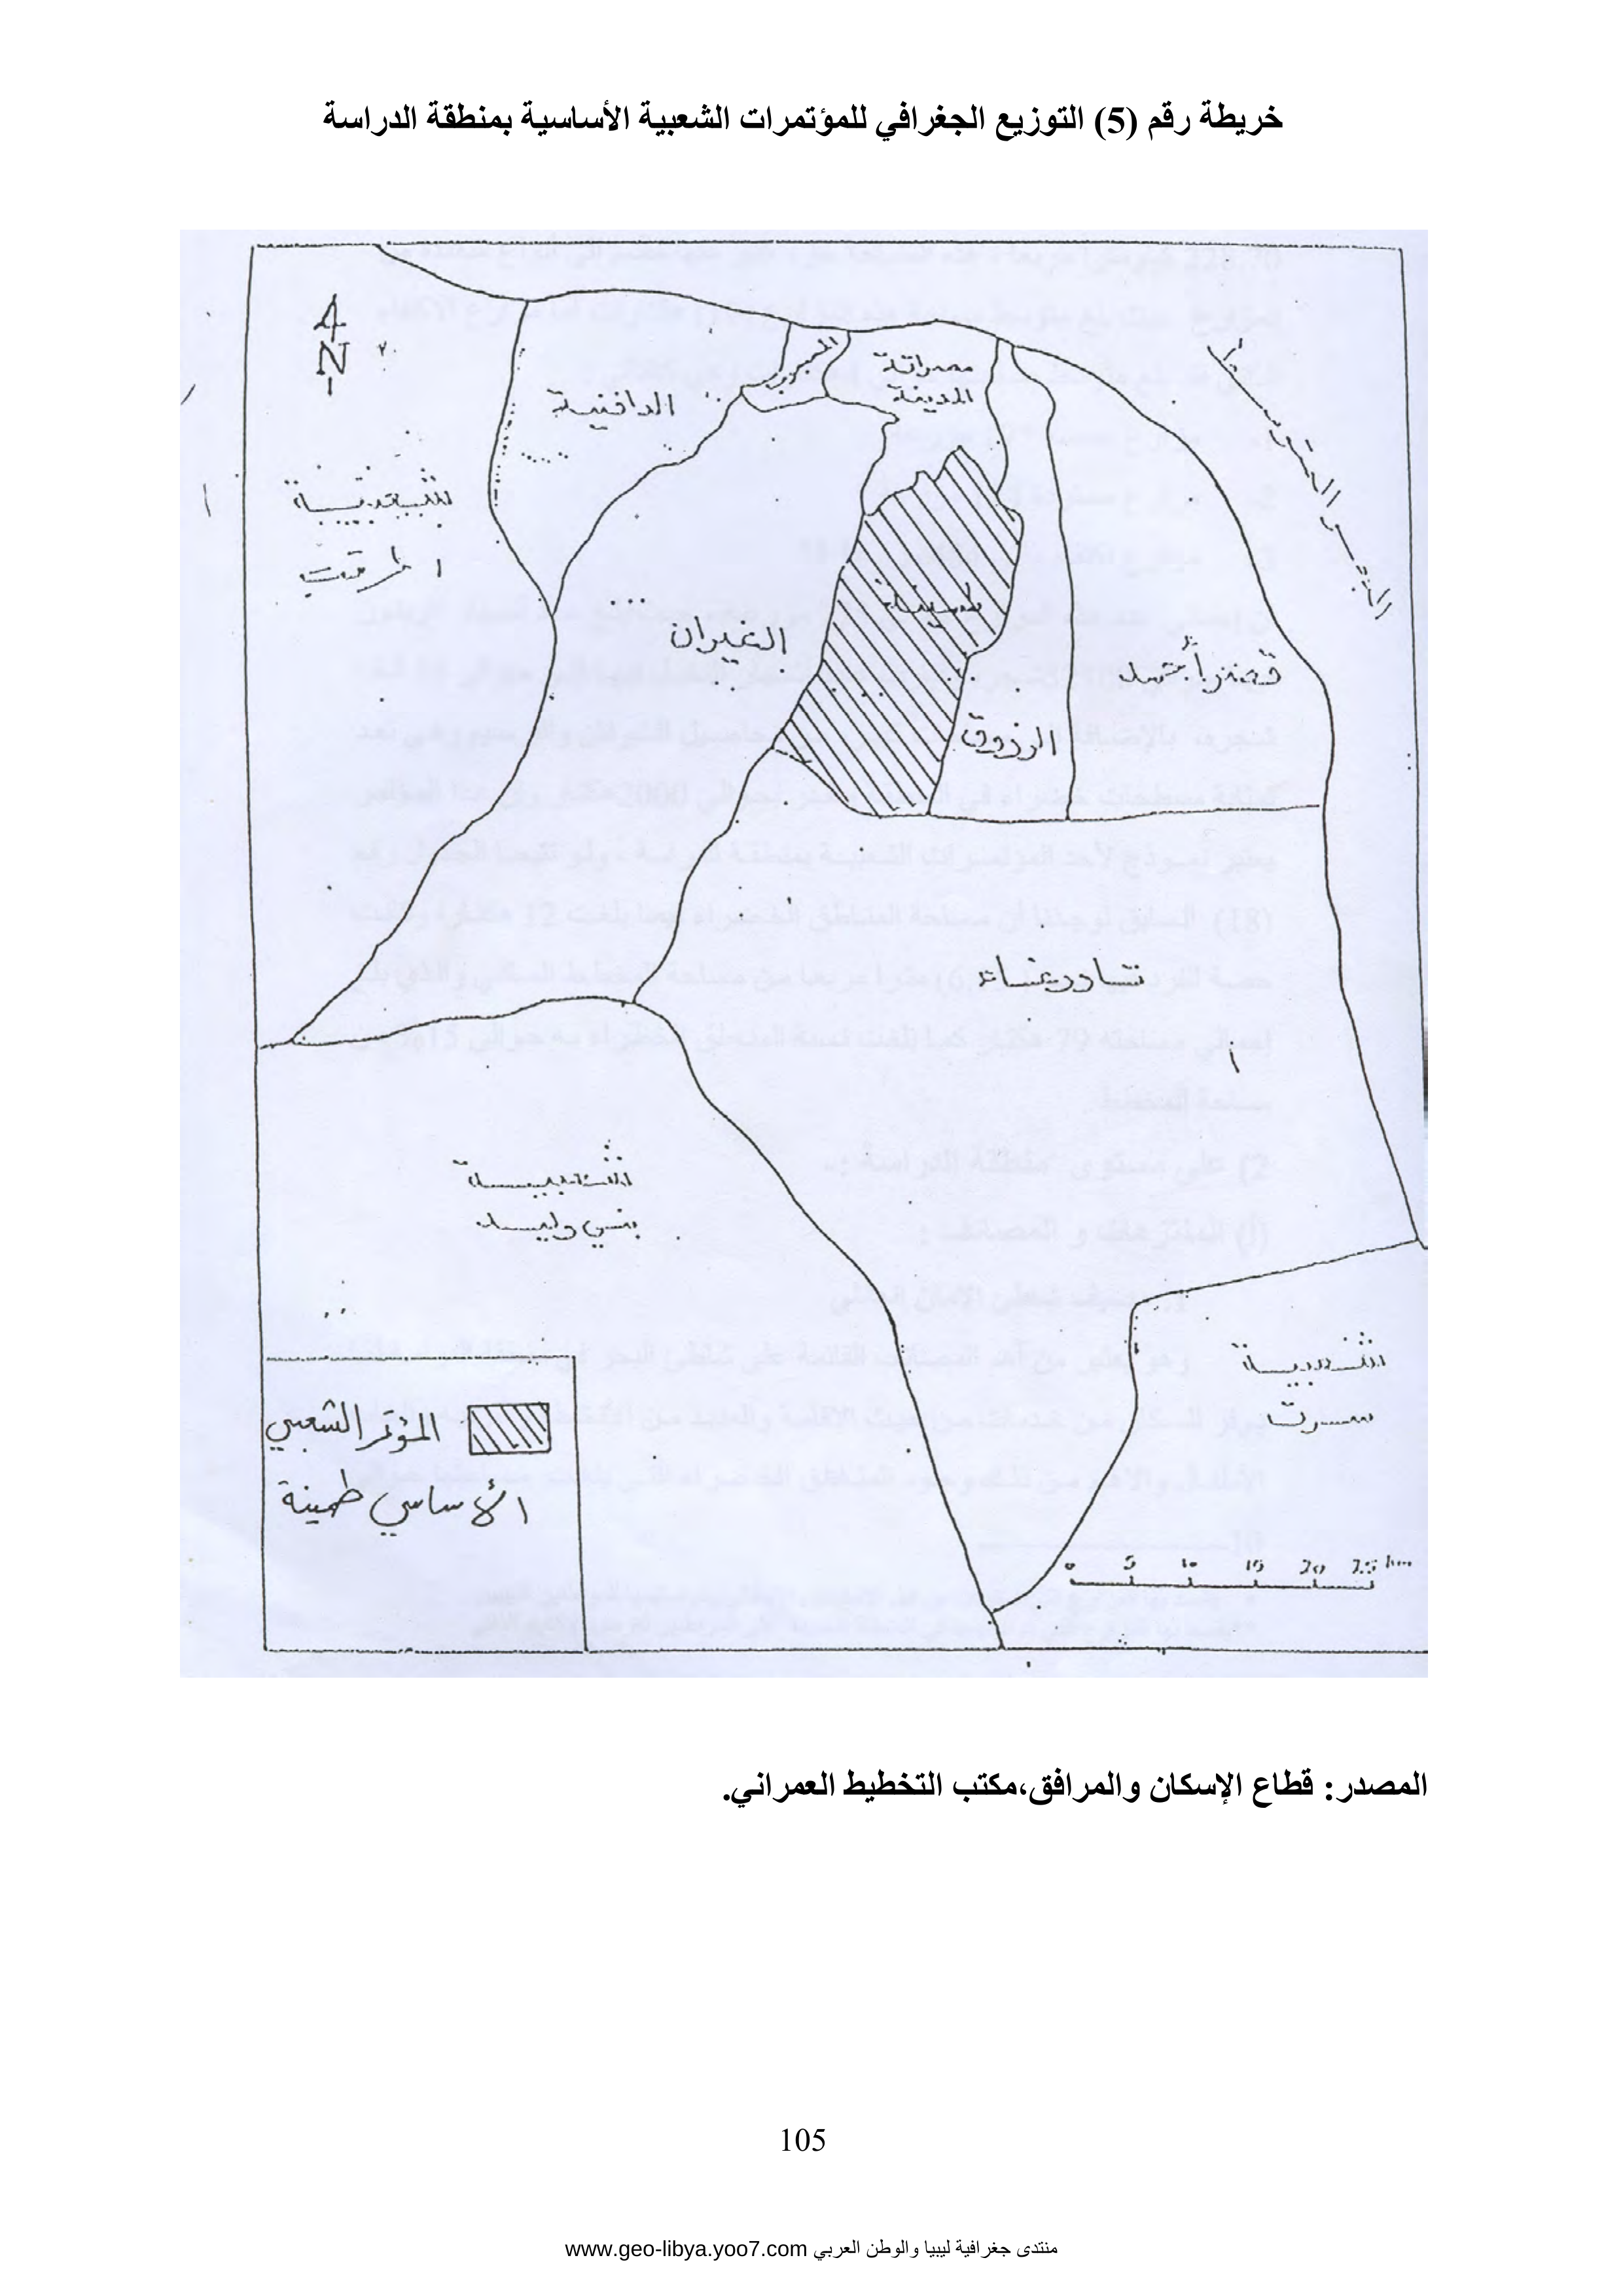 خريطة رقم (5) التوزيع الجغرافي للمؤتمرات الشعبية الأساسية بمنطقة الدراسة
N
المحجوب
مصراتة
المدينة
الدافنية
البحر المتوسط
شعبية
المرقب
طمينة
الغيران
قصر أحمد
الزروق
تاورغاء
شعبية
بني وليد
شعبية
سرت
المؤتمر الشعبي
الأساسي طمينة
0 5 10 15 20 25 km
المصدر: قطاع الإسكان والمرافق،مكتب التخطيط العمراني.
105
منتدى جغرافية ليبيا والوطن العربي www.geo-libya.yoo7.com